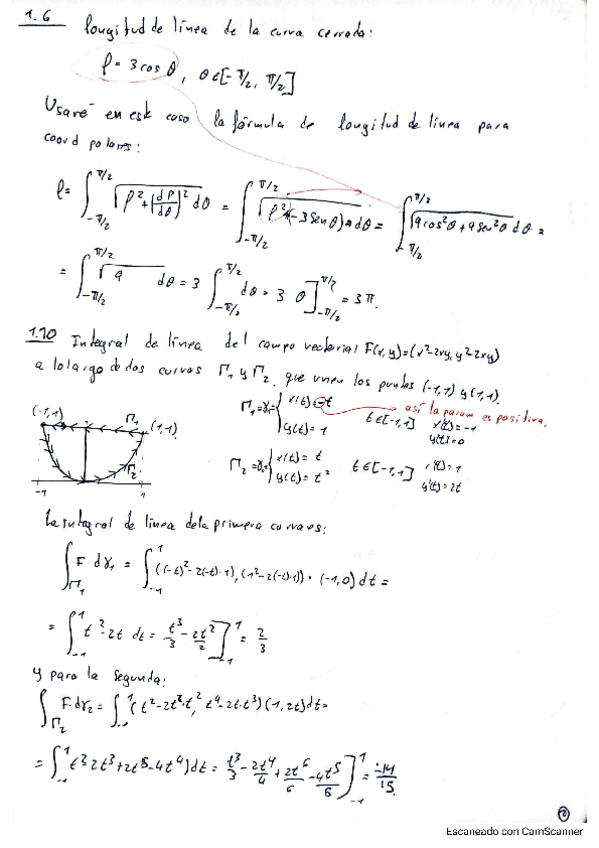 1.6 Longitud de línea de la curva cerrada:
ρ = 3 cos θ, θ ∈ [-π/2, π/2]
Usaré en este caso la fórmula de longitud de línea para
coord polares:
l = ∫_{-π/2}^{π/2} √(ρ² + (dρ/dθ)²) dθ = ∫_{-π/2}^{π/2} √(ρ² + (-3 sen θ)²) dθ = ∫_{-π/2}^{π/2} √(9cos²θ + 9sen²θ) dθ =
= ∫_{-π/2}^{π/2} √9 dθ = 3 ∫_{-π/2}^{π/2} dθ = 3 θ]_{-π/2}^{π/2} = 3π.
1.10 Integral de línea del campo vectorial F(x,y)=(x²-2xy, y²-2xy)
a lo largo de dos curvas Γ₁ y Γ₂ que unen los puntos (-1,1) y (1,1).
Γ₁=γ₁={ x(t)=-t
y(t)=1
t∈[-1,1]
así la param es positiva.
x'(t)=-1
y'(t)=0
(-1,1)
Γ₁
(1,1)
Γ₂
-1
1
Γ₂=γ₂={ x(t)=t
y(t)=t²
t∈[-1,1]
x'(t)=1
y'(t)=2t
La integral de línea de la primera curva es:
∫_{Γ₁} F·dγ₁ = ∫_{-1}^{1} ((-t)²-2(-t)·1), (1²-2(-t)·1)) · (-1,0) dt =
= ∫_{-1}^{1} t²-2t dt = t³/3 - 2t²/2]_{-1}^{1} = 2/3
y para la segunda:
∫_{Γ₂} F·dγ₂ = ∫_{-1}^{1} (t²-2t·t², t⁴-2t·t²)(1,2t)dt=
= ∫_{-1}^{1} t²-2t³+2t⁵-4t⁴)dt = t³/3 - 2t⁴/4 + 2t⁶/6 - 4t⁵/5]_{-1}^{1} = -14/15.
②
Escaneado con CamScanner